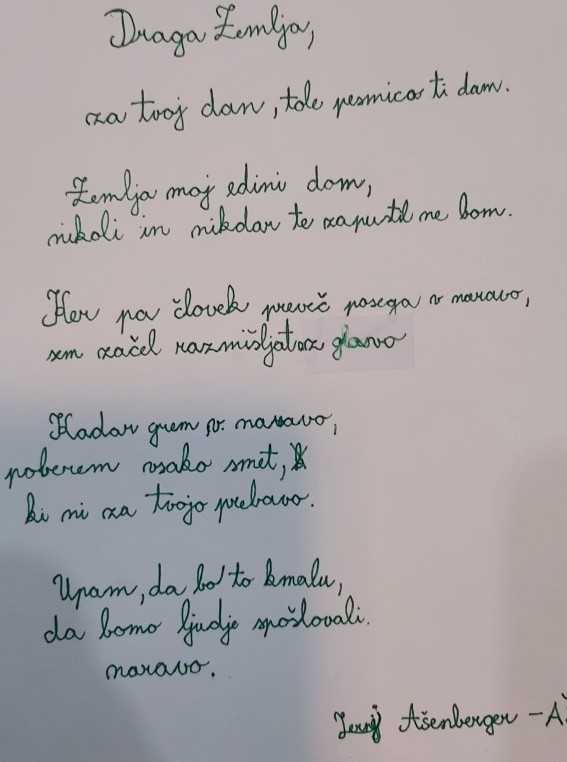 Draga Zemlja,
za tvoj dan, tole pesmico ti dam.
Zemlja moj edini dom,
nikoli in nikdar te zapustil ne bom.
Ker pa človek preveč posega v naravo,
sem začel razmišljat z glavo
Kadar grem v naravo,
poberem vsako smet,
ki ni za tvojo prebavo.
Upam, da bo to kmalu,
da bomo ljudje spošlovali.
naravo.
Jernej Ašenberger - AŠ